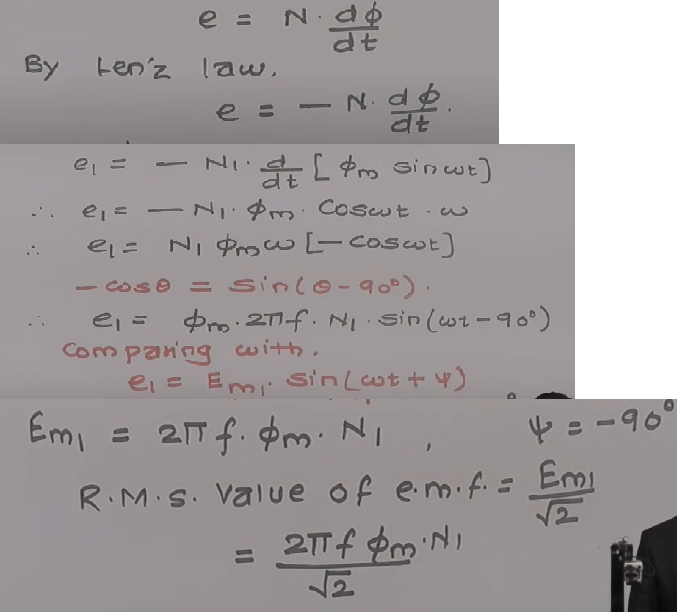 e = N. dφ/dt
By Len'z law,
e = — N. dφ/dt.
e₁ = — N₁. d/dt [ φm sin ωt]
∴ e₁ = — N₁. φm. cos ωt . ω
∴ e₁ = N₁ φm ω [— cos ωt]
— cos θ = sin(θ - 90°).
∴ e₁ = φm. 2πf. N₁. sin(ωt - 90°)
Comparing with.
e₁ = Em₁. sin(ωt + ψ)
Em₁ = 2πf. φm. N₁ , ψ = -90°
R.M.S. Value of e.m.f. = Em₁/√2
= 2πf φm.N₁/√2